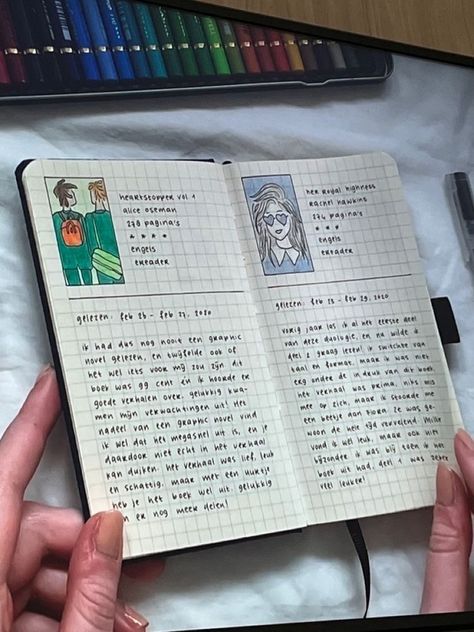 heartstopper vol 1
alice oseman
278 pagina's
* * * *
engels
ereader
gelezen: feb 23 - feb 27, 2020
ik had dus nog nooit een graphic
novel gelezen, en twijfelde ook of
het wel iets voor mij zou zijn. dit
boek was 99 cent én ik hoorde er
goede verhalen over. gelukkig kwa-
men mijn verwachtingen uit! het
nadeel van een graphic novel vind
ik wel dat het megasnel uit is, en je
daardoor niet echt in het verhaal
kan duiken. het verhaal was lief, leuk
en schattig, maar met een uurtje
heb je het boek wel uit. gelukkig
er nog meer delen!
her royal highness
rachel hawkins
274 pagina's
* * *
engels
ereader
gelezen: feb 23 - feb 29, 2020
vorig jaar las ik al het eerste deel
van deze duologie, en nu wilde ik
deel 2 graag lezen! ik switchte van
taal en format, maar ik was niet
erg onder de indruk van dit boek
het verhaal was prima, niks mis
mee op zich, maar ik stoorde me
een beetje aan flora. ze was ge-
woon de hele tijd vervelend. millie
vond ik wel leuk, maar ook niet
bijzonder. ik was blij toen ik het
boek uit had, deel 1 was zeker
veel leuker!